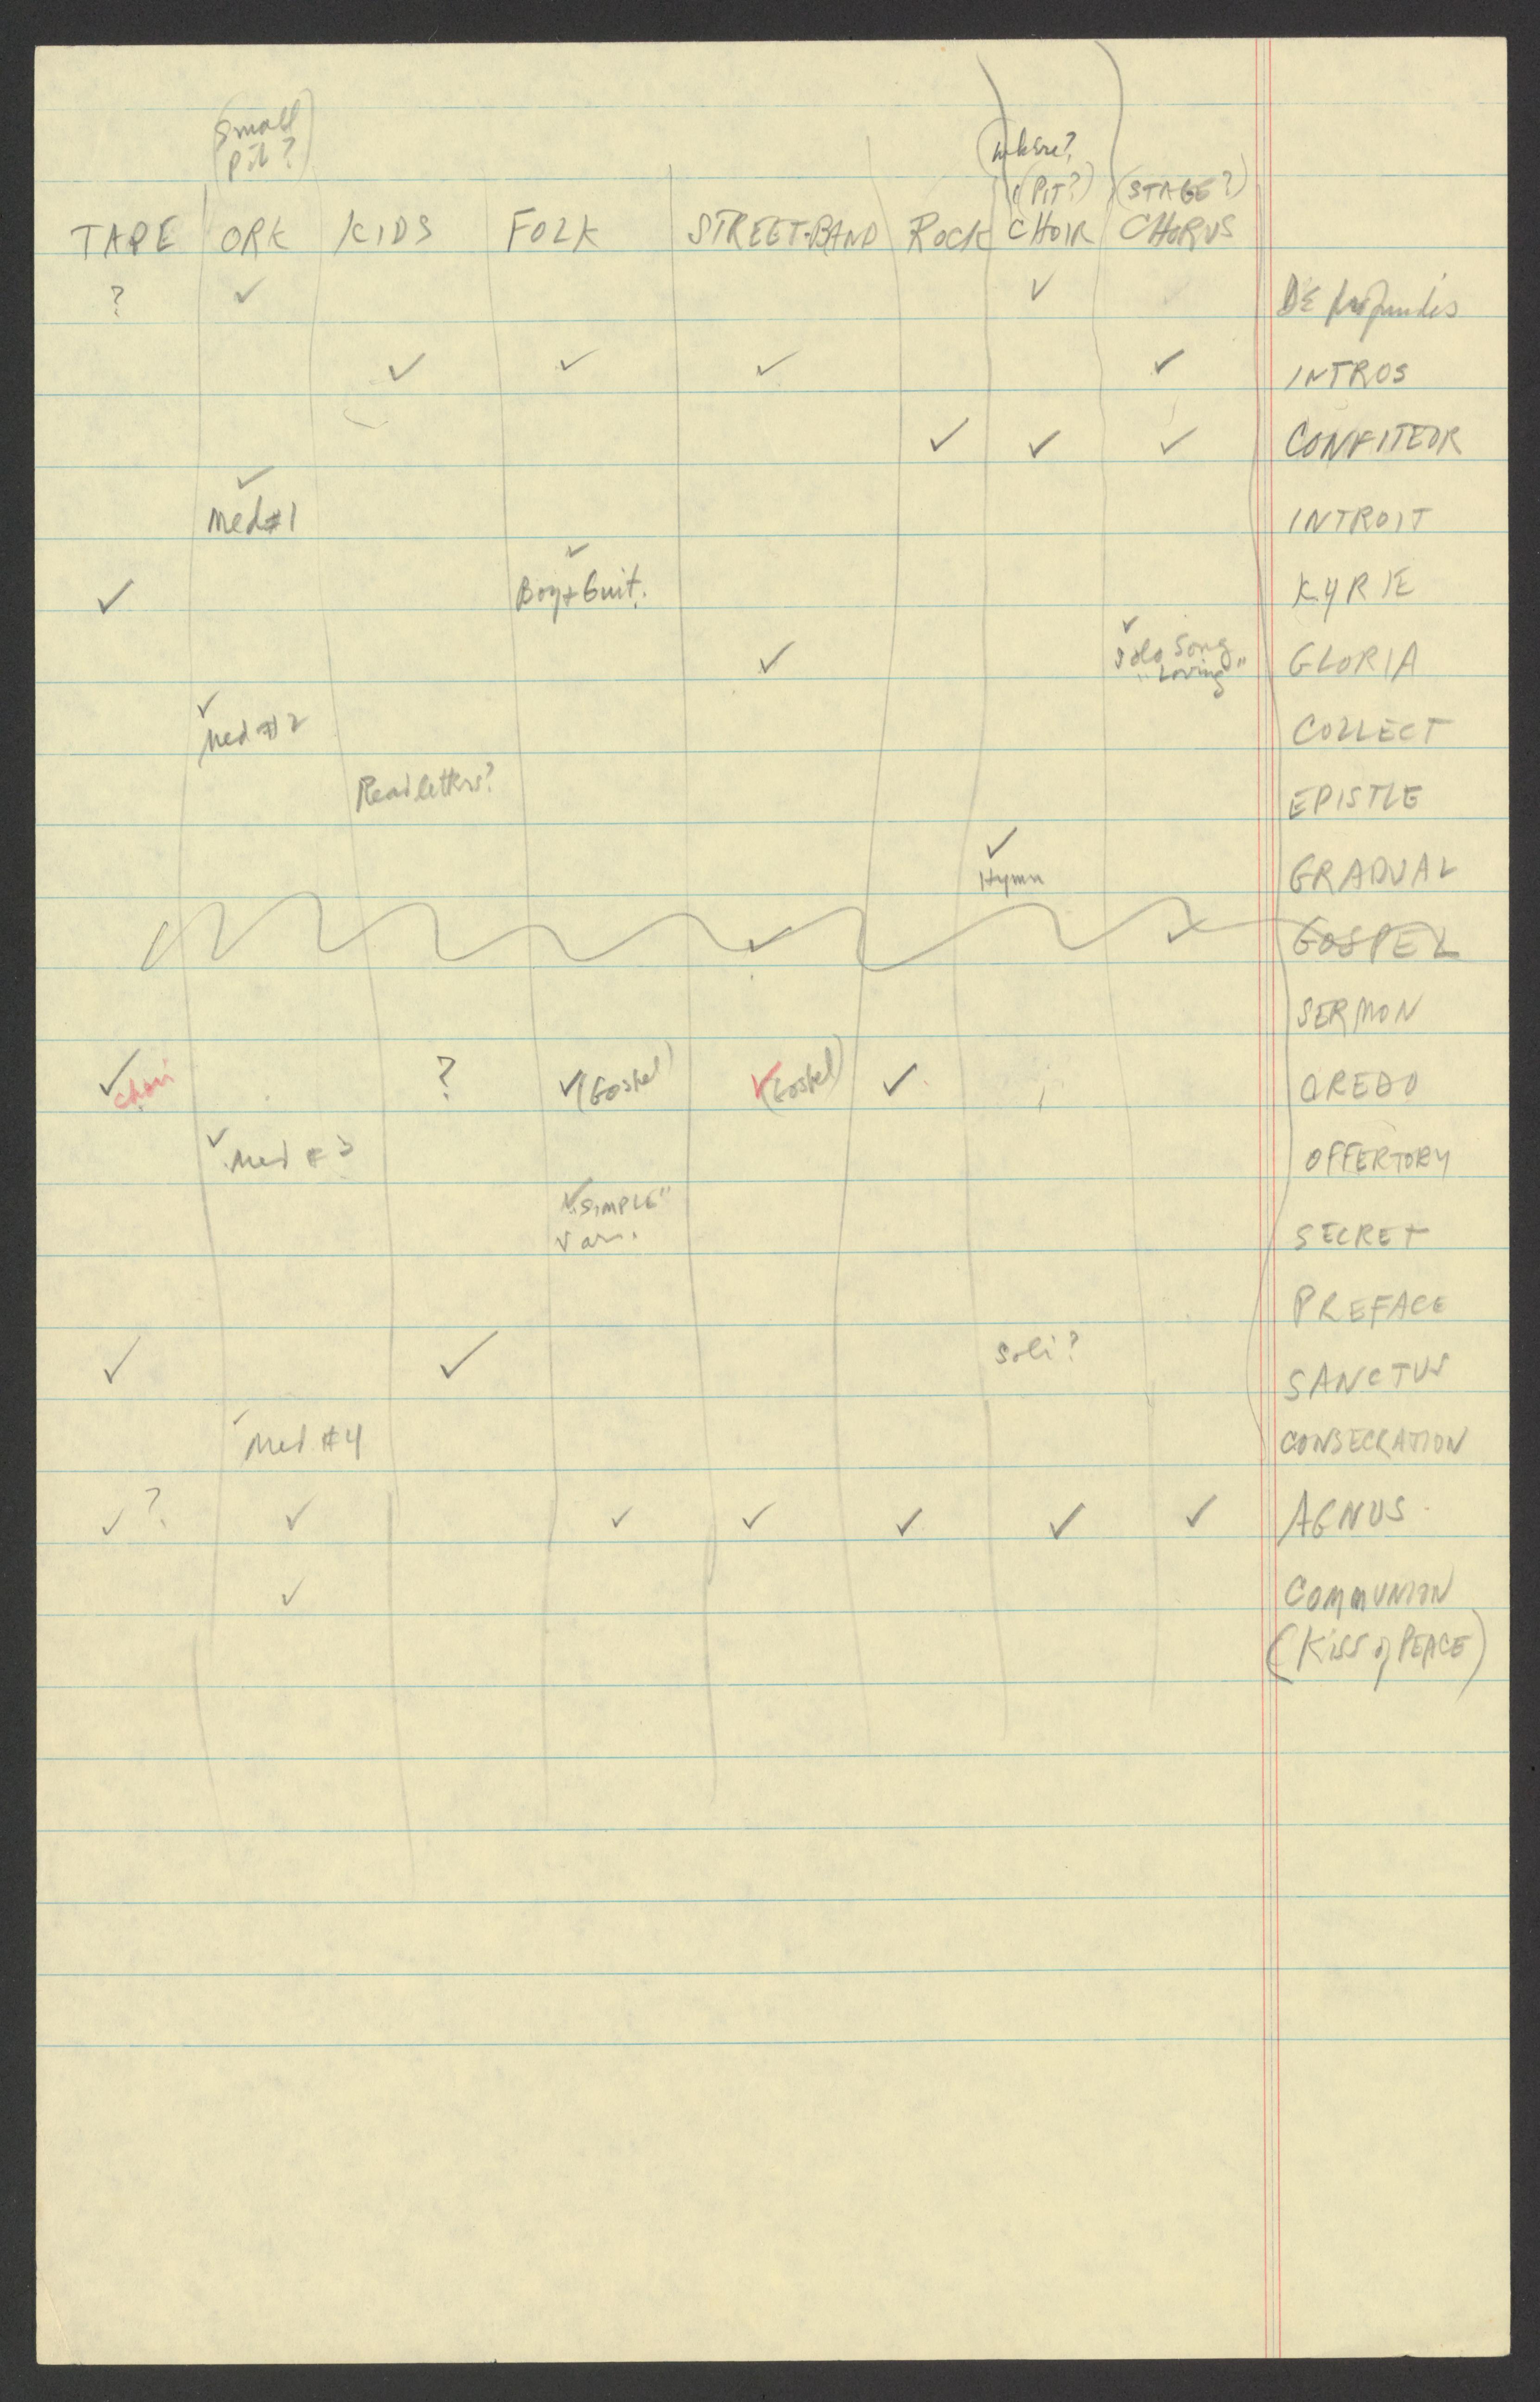 (small
pit?)
(where?
(PIT?) (STAGE?)
TAPE ORK KIDS FOLK STREET-BAND ROCK CHOIR CHORUS
? ✓ ✓ DE profundis
✓ ✓ ✓ ✓ INTROS
✓ ✓ ✓ CONFITEOR
✓
Med #1 INTROIT
✓
✓ Boy + Guit. KYRIE
✓
✓ Solo Song GLORIA
"Loving"
✓
Med #2 COLLECT
Read letters? EPISTLE
✓
Hymn GRADUAL
✓ ✓ GOSPEL
SERMON
✓ ? ✓ (Gospel) ✓ (Gospel) ✓ CREDO
choir
✓ Med #3 OFFERTORY
✓ "SIMPLE"
Var. SECRET
PREFACE
✓ ✓ Soli? SANCTUS
✓ Med #4 CONSECRATION
✓ ? ✓ ✓ ✓ ✓ ✓ ✓ AGNUS
✓ COMMUNION
(KISS of PEACE)